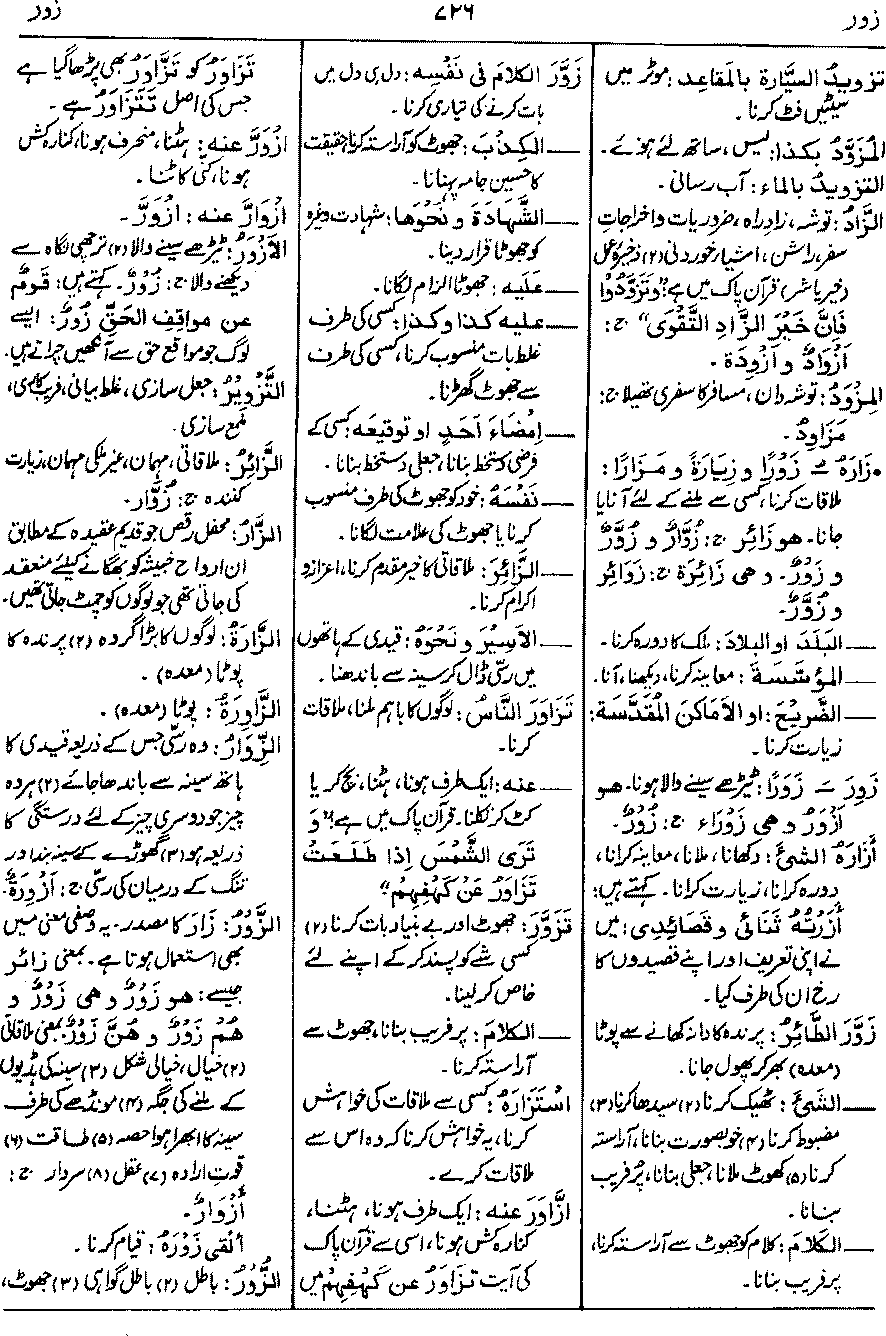 زور
۷۲۶
زور
تزويدُ السيّارة بالمقاعد: موٹر میں
سیٹیں فٹ کرنا۔
المُزَوَّدُ بکذا: لیس، ساتھ لئے ہوئے۔
التزويدُ بالماء: آب رسانی۔
الزَّادُ: توشہ، زادِ راہ، ضروریات و اخراجاتِ
سفر، راشن، اشیار خوردنی (۲) ذخیرۂ عمل
(خیر یا شر) قرآن پاک میں ہے: "وَتَزَوَّدُوا
فَإِنَّ خَيْرَ الزَّادِ التَّقْوَى" ج:
أزْوَادٌ و أزْوِدَة۔
المِزْوَدُ: توشہ دان، مسافر کا سفری تھیلا ج:
مَزَاوِدُ۔
•زَارَهُ ـُ زَوْرًا و زِيَارَةً و مَزَارًا:
ملاقات کرنا، کسی سے ملنے کے لئے آنا یا
جانا۔ هو زَائِر ج: زُوَّارٌ و زُوَّرٌ
و زَوْرٌ۔ و هی زَائِرَة ج: زَوَائِر
و زُوَّرٌ۔
— البَلَدَ او البلادَ: ملک کا دورہ کرنا۔
— المؤسَّسَةَ: معاینہ کرنا، دیکھنا، آنا۔
— الضَّريحَ: او الأماكنَ المُقَدَّسَةَ:
زیارت کرنا۔
زَوِرَ ـَ زَوَرًا: ٹیڑھے سینے والا ہونا۔ هو
أزْوَرُ و هی زَوْرَاء ج: زُوْرٌ۔
أزَارَهُ الشَّیْءَ: دکھانا، ملانا، معاینہ کرانا،
دورہ کرانا، زیارت کرانا۔ کہتے ہیں:
أزَرْتُهُ ثَنَائِی و قَصَائِدِی: میں
نے اپنی تعریف اور اپنے قصیدوں کا
رخ ان کی طرف کیا۔
زَوَّرَ الطَّائِرُ: پرندہ کا دانہ کھانے سے پوٹا
(معدہ) بھر کر پھول جانا۔
— الشَّیْءَ: ٹھیک کرنا (۲) سیدھا کرنا (۳)
مضبوط کرنا (۴) خوبصورت بنانا، آراستہ
کرنا (۵) کھوٹ ملانا، جعلی بنانا، پُر فریب
بنانا۔
— الکلامَ: کلام کو جھوٹ سے آراستہ کرنا،
پر فریب بنانا۔
زَوَّرَ الکلامَ فی نَفْسِه: دل ہی دل میں
بات کرنے کی تیاری کرنا۔
— الکِذْبَ: جھوٹ کو آراستہ کرنا، حقیقت
کا حسین جامہ پہنانا۔
— الشَّهَادَةَ و نَحْوَها: شہادت وغیرہ
کو جھوٹا قرار دینا۔
— عَلَيْه: جھوٹا الزام لگانا۔
— علیه کذا و کذا: کسی کی طرف
غلط بات منسوب کرنا، کسی کی طرف
سے جھوٹ گھڑنا۔
— إمْضَاءَ أحَدٍ او توقیعَه: کسی کے
فرضی دستخط بنانا، جعلی دستخط بنانا۔
— نَفْسَهُ: خود کو جھوٹ کی طرف منسوب
کرنا یا جھوٹ کی علامت لگانا۔
— الزَّائِرَ: ملاقاتی کا خیر مقدم کرنا، اعزاز و
اکرام کرنا۔
— الأسِیْرَ و نَحْوَهُ: قیدی کے ہاتھوں
میں رسّی ڈال کر سینہ سے باندھنا۔
تَزَاوَرَ النَّاسُ: لوگوں کا باہم ملنا، ملاقات
کرنا۔
— عنه: ایک طرف ہونا، ہٹنا، بچ کر یا
کٹ کر نکلنا۔ قرآن پاک میں ہے: "وَ
تَرَى الشَّمْسَ إذا طَلَعَتْ
تَزَاوَرُ عَنْ كَهْفِهِمْ"
تَزَوَّرَ: جھوٹ اور بے بنیاد بات کرنا (۲)
کسی شے کو پسند کر کے اپنے لئے
خاص کر لینا۔
— الکلامَ: پر فریب بنانا، جھوٹ سے
آراستہ کرنا۔
اسْتَزَارَهُ: کسی سے ملاقات کی خواہش
کرنا، یہ خواہش کرنا کہ وہ اس سے
ملاقات کرے۔
ازَّاوَرَ عنه: ایک طرف ہونا، ہٹنا،
کنارہ کش ہونا، اسی سے قرآن پاک
کی آیت تَزَاوَرُ عن كَهْفِهِمْ میں
تَزَاوَرُ کو تَزَّاوَرُ بھی پڑھا گیا ہے
جس کی اصل تَتَزَاوَرُ ہے۔
ازْوَرَّ عنه: ہٹنا، منحرف ہونا، کنارہ کش
ہونا، کنی کاٹنا۔
ازْوَارَّ عنه: ازْوَرَّ۔
الأزْوَرُ: ٹیڑھے سینے والا (۲) ترچھی نگاہ سے
دیکھنے والا ج: زُوْرٌ۔ کہتے ہیں: قَومٌ
عن مواقِفِ الحَقِّ زُورٌ: ایسے
لوگ جو مواقع حق سے آنکھیں چراتے ہیں۔
التَّزْوِیْرُ: جعل سازی، غلط بیانی، فریب کاری،
ملمع سازی۔
الزَّائِرُ: ملاقاتی، مہمان، غیر ملکی مہمان، زیارت
کنندہ ج: زُوَّار۔
الزَّارُ: محفل رقص جو قدیم عقیدہ کے مطابق
ان ارواح خبیثہ کو بھگانے کیلئے منعقد
کی جاتی تھی جو لوگوں کو چمٹ جاتی تھیں۔
الزَّارَةُ: لوگوں کا بڑا گروہ (۲) پرندہ کا
پوٹا (معدہ)۔
الزَّاوِرَةُ: پوٹا (معدہ)۔
الزِّوَارُ: وہ رسّی جس کے ذریعہ قیدی کا
ہاتھ سینہ سے باندھا جائے (۲) ہر وہ
چیز جو دوسری چیز کے لئے درستگی کا
ذریعہ ہو (۳) گھوڑے کے سینہ بند اور
تنگ کے درمیان کی رسّی ج: أزْوِرَةٌ۔
الزَّوْرُ: زَارَ کا مصدر۔ یہ وصفی معنی میں
بھی استعمال ہوتا ہے۔ بمعنی زَائِر
جیسے: هو زَوْرٌ و هی زَوْرٌ و
هُم زَوْرٌ و هُنَّ زَوْرٌ بمعنی ملاقاتی
(۲) خیال، خیالی شکل (۳) سینہ کی ہڈیوں
کے ملنے کی جگہ (۴) مونڈھے کی طرف
سینہ کا ابھرا ہوا حصہ (۵) طاقت (۶)
قوتِ ارادہ (۷) عقل (۸) سردار ج:
أزْوَارٌ۔
ألْقَى زَوْرَهُ: قیام کرنا۔
الزُّوْرُ: باطل (۲) باطل گواہی (۳) جھوٹ،